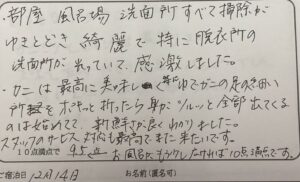 ・部屋、風呂場、洗面所すべて掃除が
ゆきとどき 綺麗で特に脱衣所の
洗面所が 出っていて、感激しました。
・カニは最高に美味しく特にゆでガニの足の
所をポキッと折ったら身がツルッと全部出てくる
のは始めてで、新鮮さが良くわかりました。
スタッフのサービス、対応も最高でまた来たいです。
10点満点で 9.5点 お風呂に なければ10点満点です。
ご宿泊日 12月14日 お名前(匿名可)